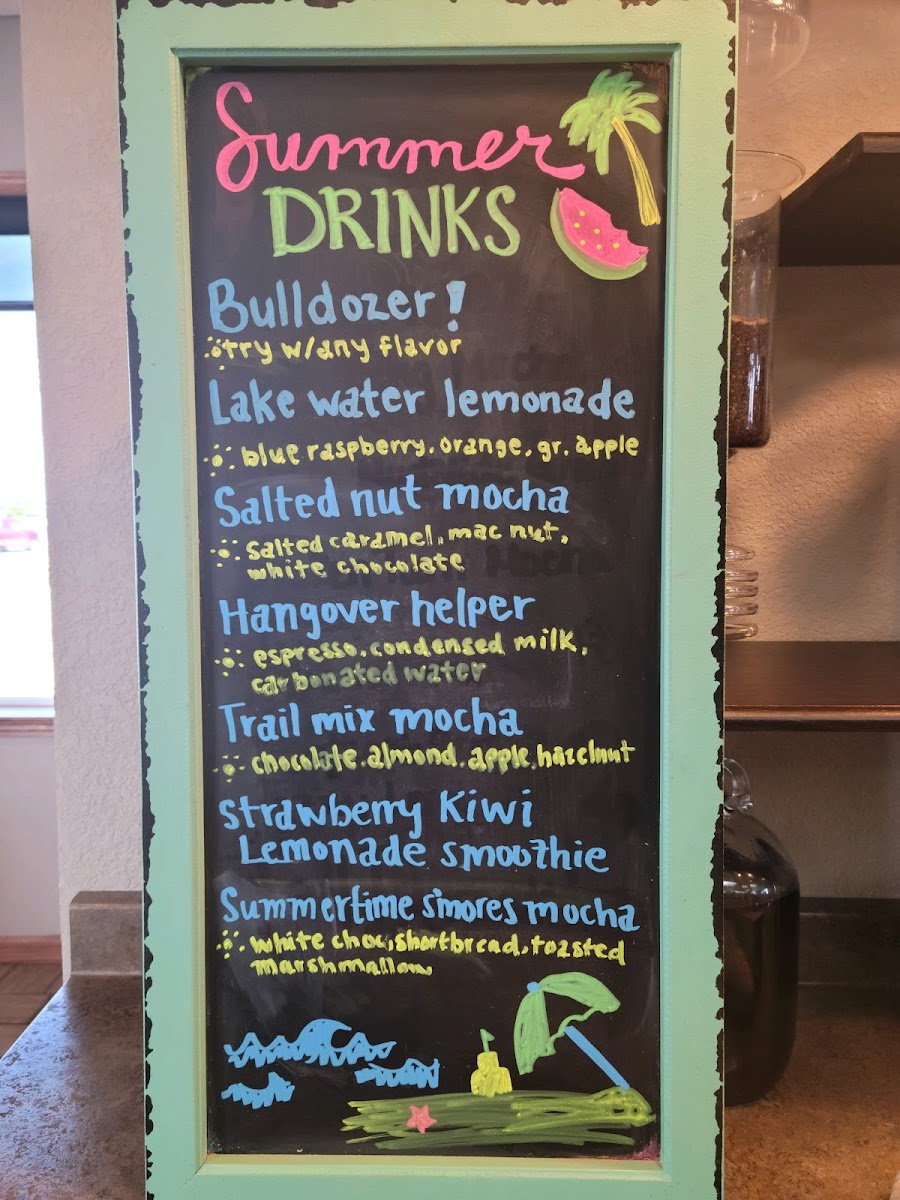 Summer
DRINKS
Bulldozer!
try w/any flavor
Lake water lemonade
blue raspberry, orange, gr. apple
Salted nut mocha
Salted caramel, mac nut,
white chocolate
Hangover helper
espresso, condensed milk,
carbonated water
Trail mix mocha
chocolate, almond, apple, hazelnut
strawberry Kiwi
Lemonade smoothie
Summertime s'mores mocha
white choc, shortbread, toasted
marshmallow